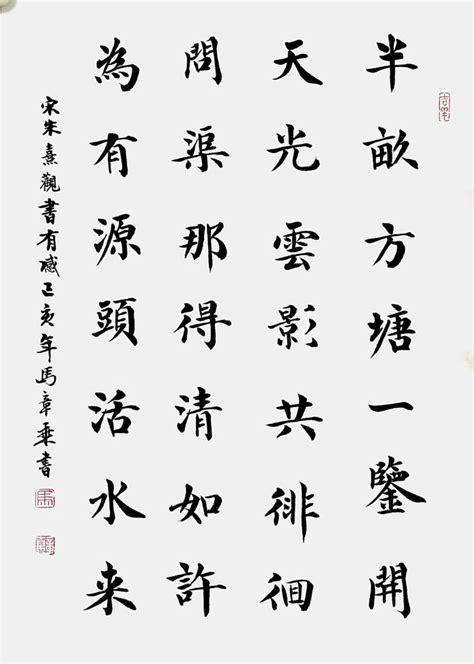 半畝方塘一鑒開
天光雲影共徘徊
問渠那得清如許
為有源頭活水来
宋朱熹觀書有感己亥年馬章乘書